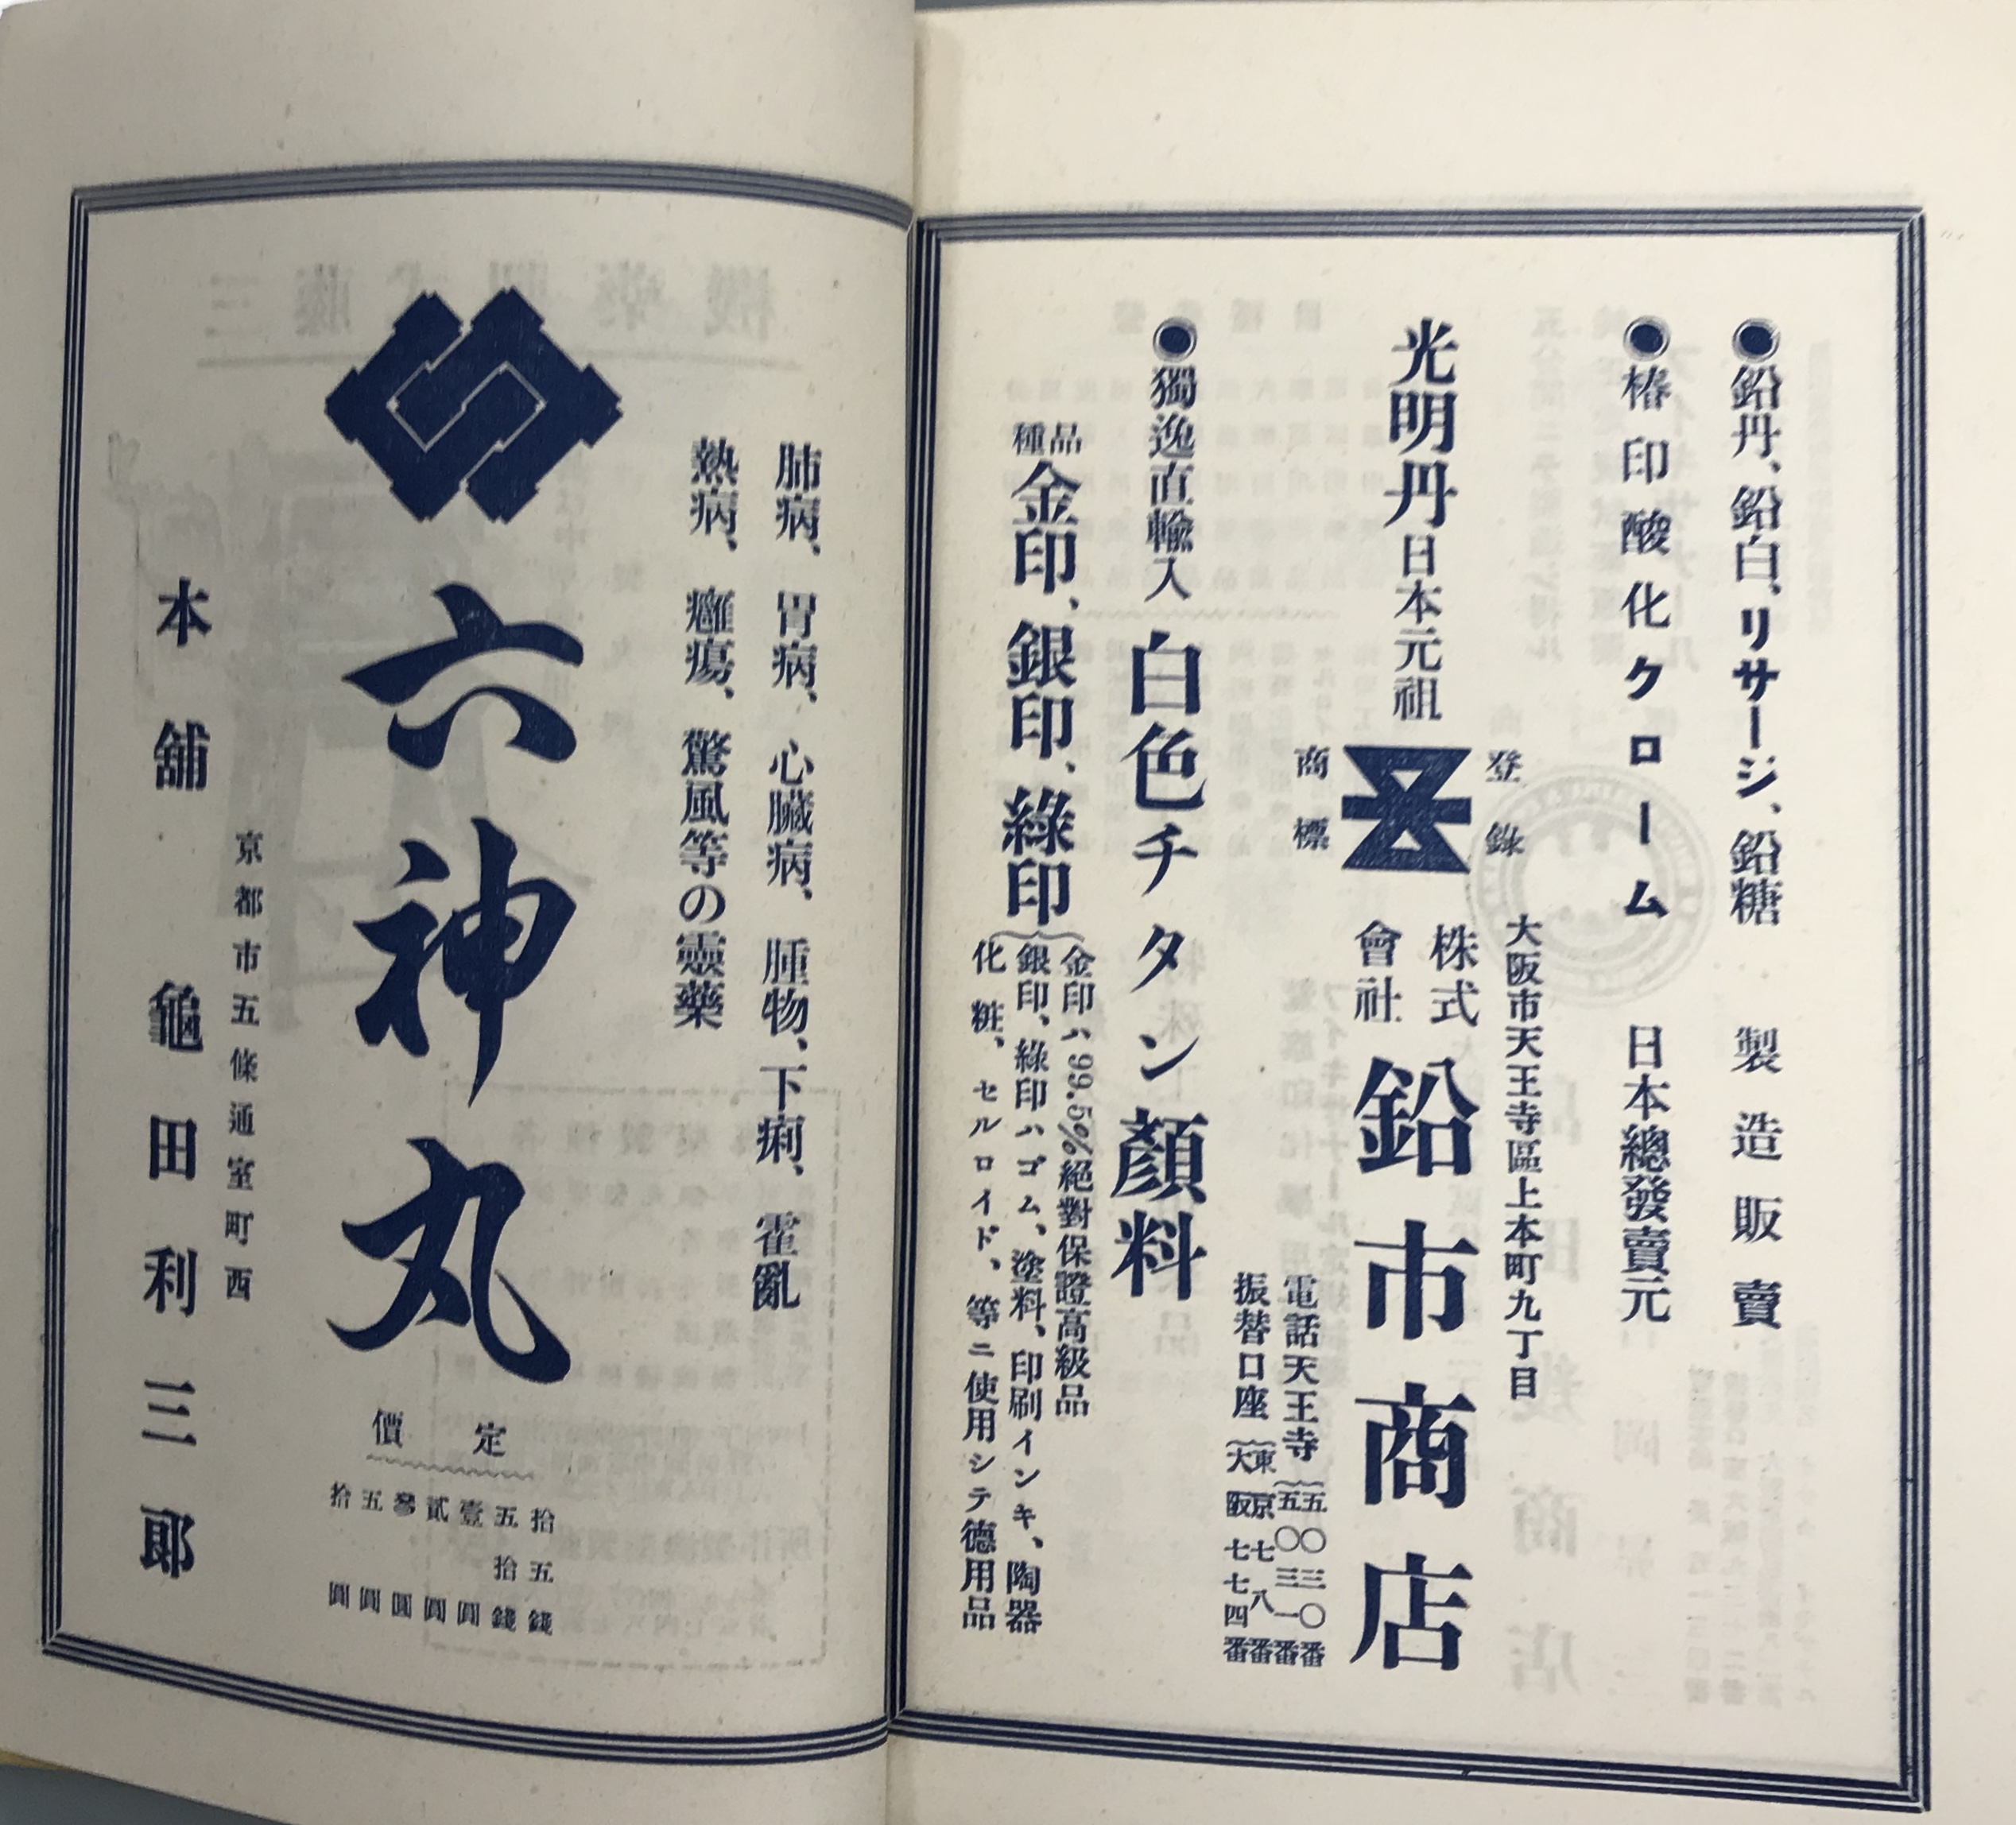 ●鉛丹、鉛白、リサージ、鉛糖 製造販賣
●椿印酸化クローム 日本總發賣元
光明丹日本元祖
登錄
商標
大阪市天王寺區上本町九丁目
株式
會社
鉛市商店
電話天王寺
五〇三〇番
五〇三一番
振替口座
東京七八番
大阪七七四番
●獨逸直輸入 白色チタン顏料
品
種
金印、銀印、綠印
金印ハ99.5%絕對保證高級品
銀印、綠印ハゴム、塗料、印刷インキ、陶器
化粧、セルロイド、等ニ使用シテ德用品
肺病、胃病、心臟病、腫物、下痢、霍亂
熱病、癰瘍、驚風等の靈藥
六神丸
定價
拾五錢
五拾錢
壹圓
貳圓
參圓
五圓
拾圓
京都市五條通室町西
本舖 龜田利三郎